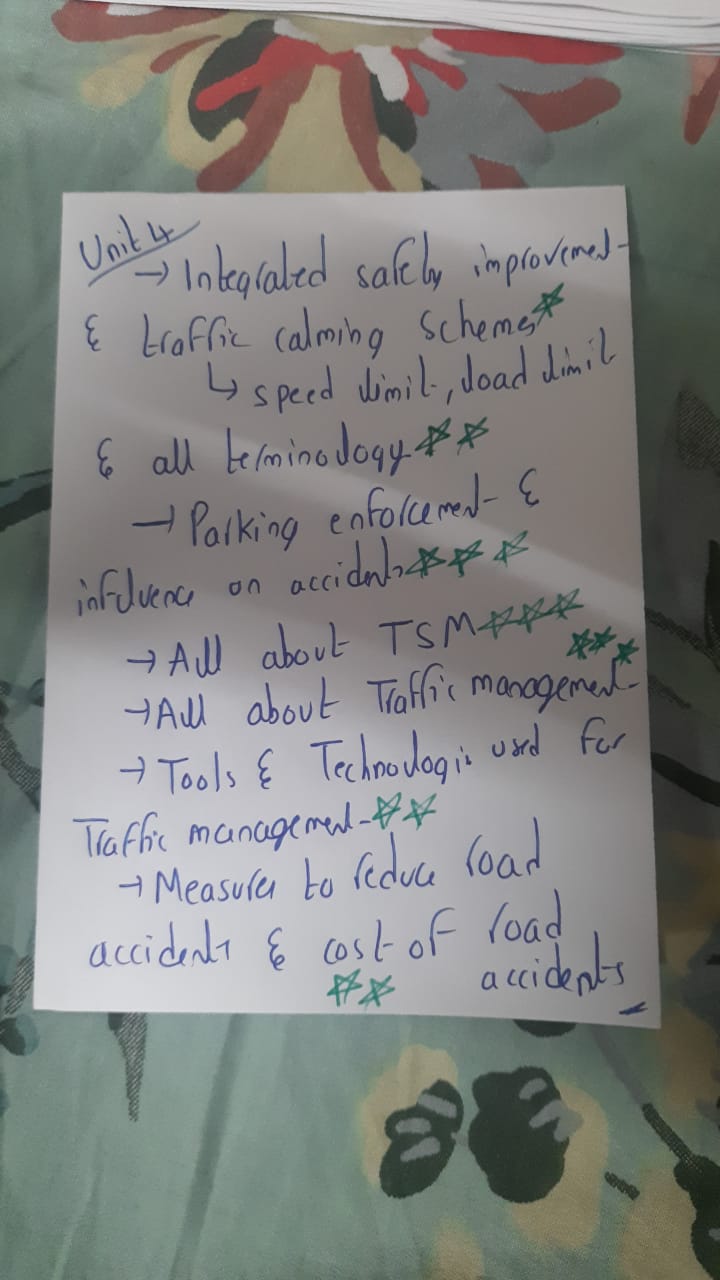 Unit 4
→ Integrated safety improvement
& traffic calming Schemes ☆
↳ speed limit, load limit
& all terminology ☆☆
→ Parking enforcement &
influence on accidents ☆☆☆
→ All about TSM ☆☆☆
→ All about Traffic management ☆☆☆
→ Tools & Technologis used for
Traffic management ☆☆
→ Measures to reduce road
accidents & cost of road
accidents ☆☆